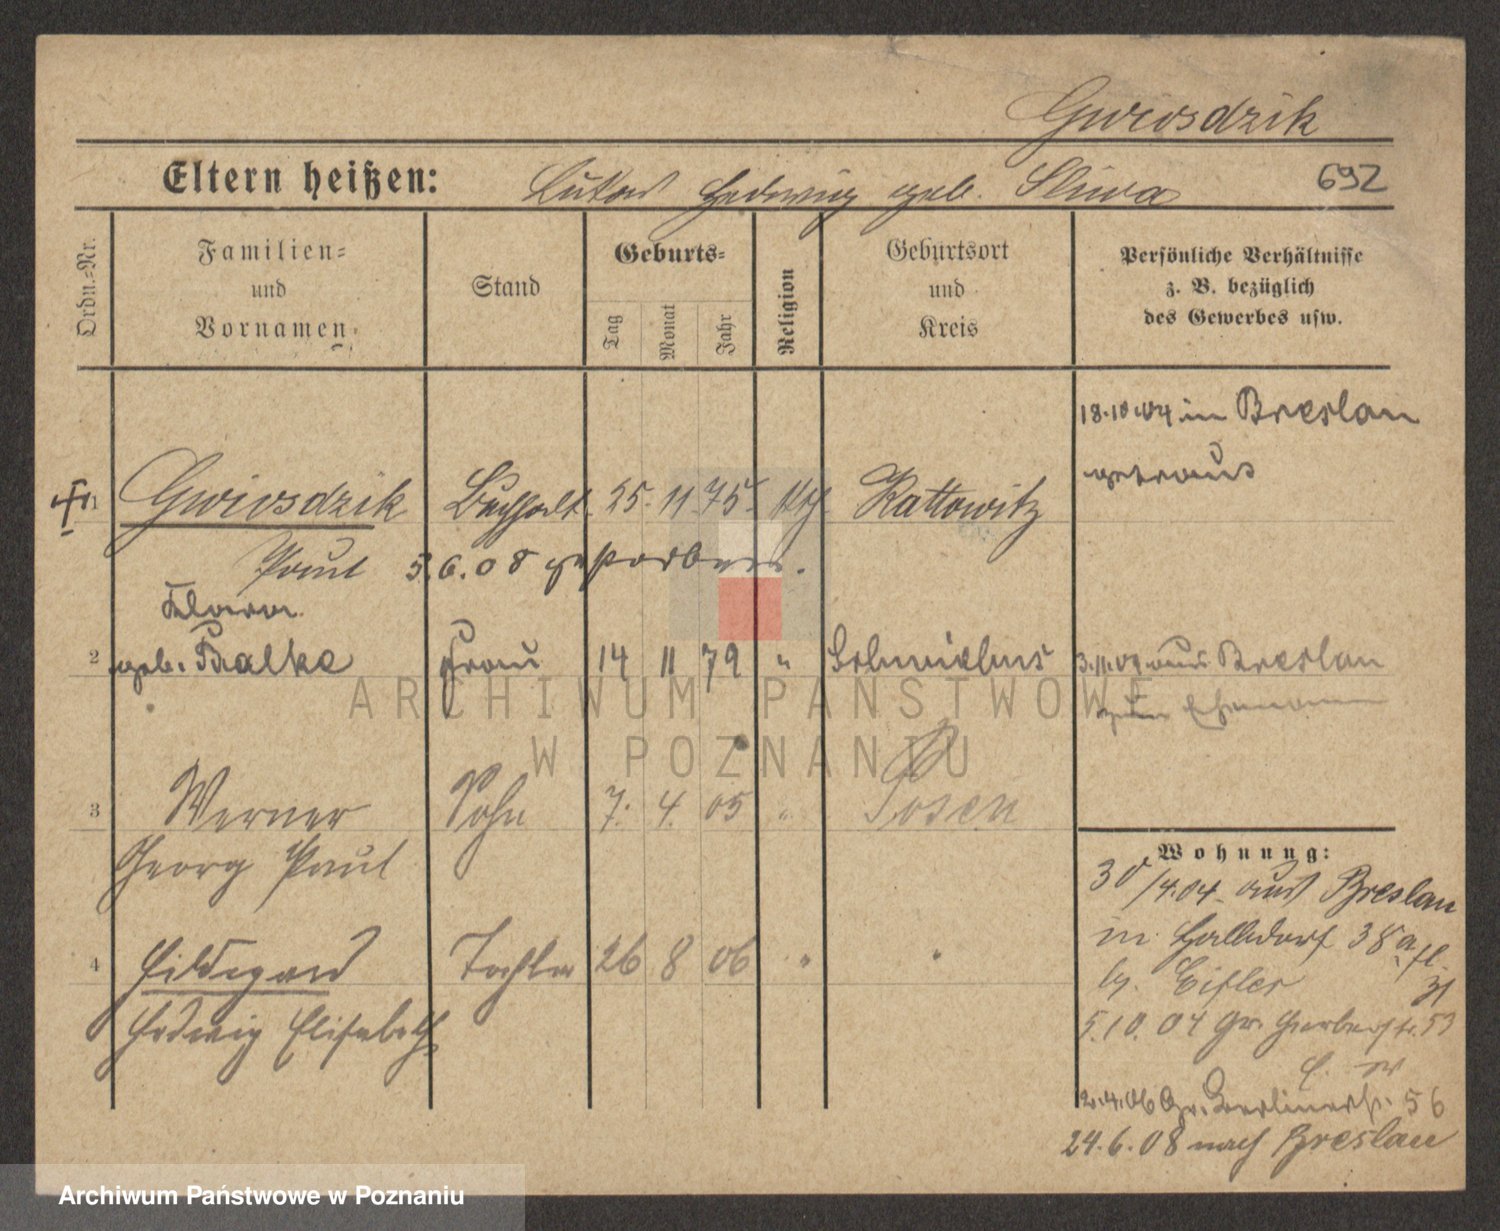 Gwiosdzik
Eltern heißen: Lukas Hedwig geb. Sliwa 692
Ordn.-Nr.
Familien-
und
Vornamen.
Stand
Geburts-
Tag
Monat
Jahr
Religion
Geburtsort
und
Kreis
Persönliche Verhältnisse
z. B. bezüglich
des Gewerbes usw.
18.10.04 in Breslau
getraut
1 Gwiosdzik Buchhalt. 25. 11. 75. Kth. Kattowitz
Paul 5.6.08 gestorben.
Klara
2 geb. Balke Frau 14 11 79 " 3.11.04 aus Breslau
zum Ehemann
3 Werner Sohn 7. 4. 05 " Posen
Georg Paul
4 Hildegard Tochter 26 8 06 " "
Hedwig Elisabeth
Wohnung:
30/4.04. aus Breslau
in 38a
by. Eifler
5.10.04 Gr. Gerberstr. 53
2.4.06 Gr. Berlinerstr. 56
24.6.08 nach Breslau
ARCHIWUM PAŃSTWOWE
W POZNANIU
Archiwum Państwowe w Poznaniu